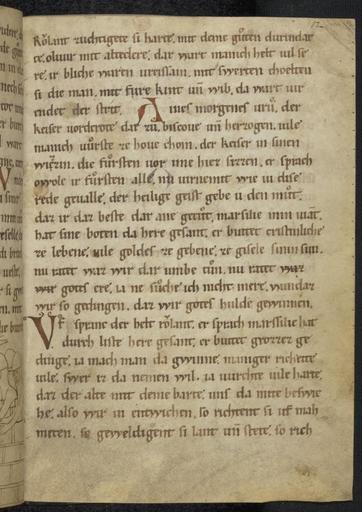 Rolant zuchtigete si harte. mit deme guten durindar
te. oliuir mit alteclere. dar wart manich helt uil se
re. ir bliche waren ureissam. mit swerten choelten
si die man. mit fiure kint uñ wib. da wart uir
endet der strit. Aines morgenes urů. der
keiser uorderote dar zů. biscoue uñ herzogen. uile
manich uůrste ze houe chom. der keiser in sinen
witzin. die fůrsten uor ime hiez sizzen. er sprach
owole ir fůrsten alle. nu uirnemit wie iu dise
rede geualle. der heilige geist gebe u den můt.
daz ir daz beste dar ane getůt. marsilie min uiant.
hat sine boten da here gesant. er biutet cristinliche
ze lebene. uile goldes ze gebene. ze gisele sinin sun.
nu ratet waz wir dar umbe tůn. nu ratet
wir gotes ere. ia ne sůche ich nicht mere. wundar
wir so gedingen. daz wir gotes hulde gewinnen.
Vf spranc der helt rolant. er sprach marssilie hat
durch liste here gesant. er biutet grozzez ge
dinge. ia mach man da gwinne. maniger richeite
uile. swer iz da nemen wil. ia uurchte uile harte.
daz der alte mit deme barte. uns da mite beswi
che. also wir in entwichen. so richtent si uf mah
meten. so geweldigent si lant uñ stete. so rich